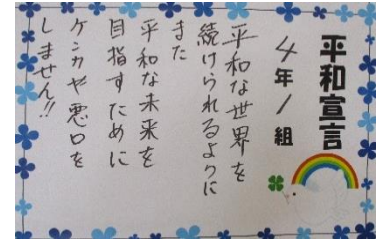 平和宣言
4年1組
平和な世界を
続けられるように
また
平和な未来を
目指すために
ケンカや悪口を
しません!!